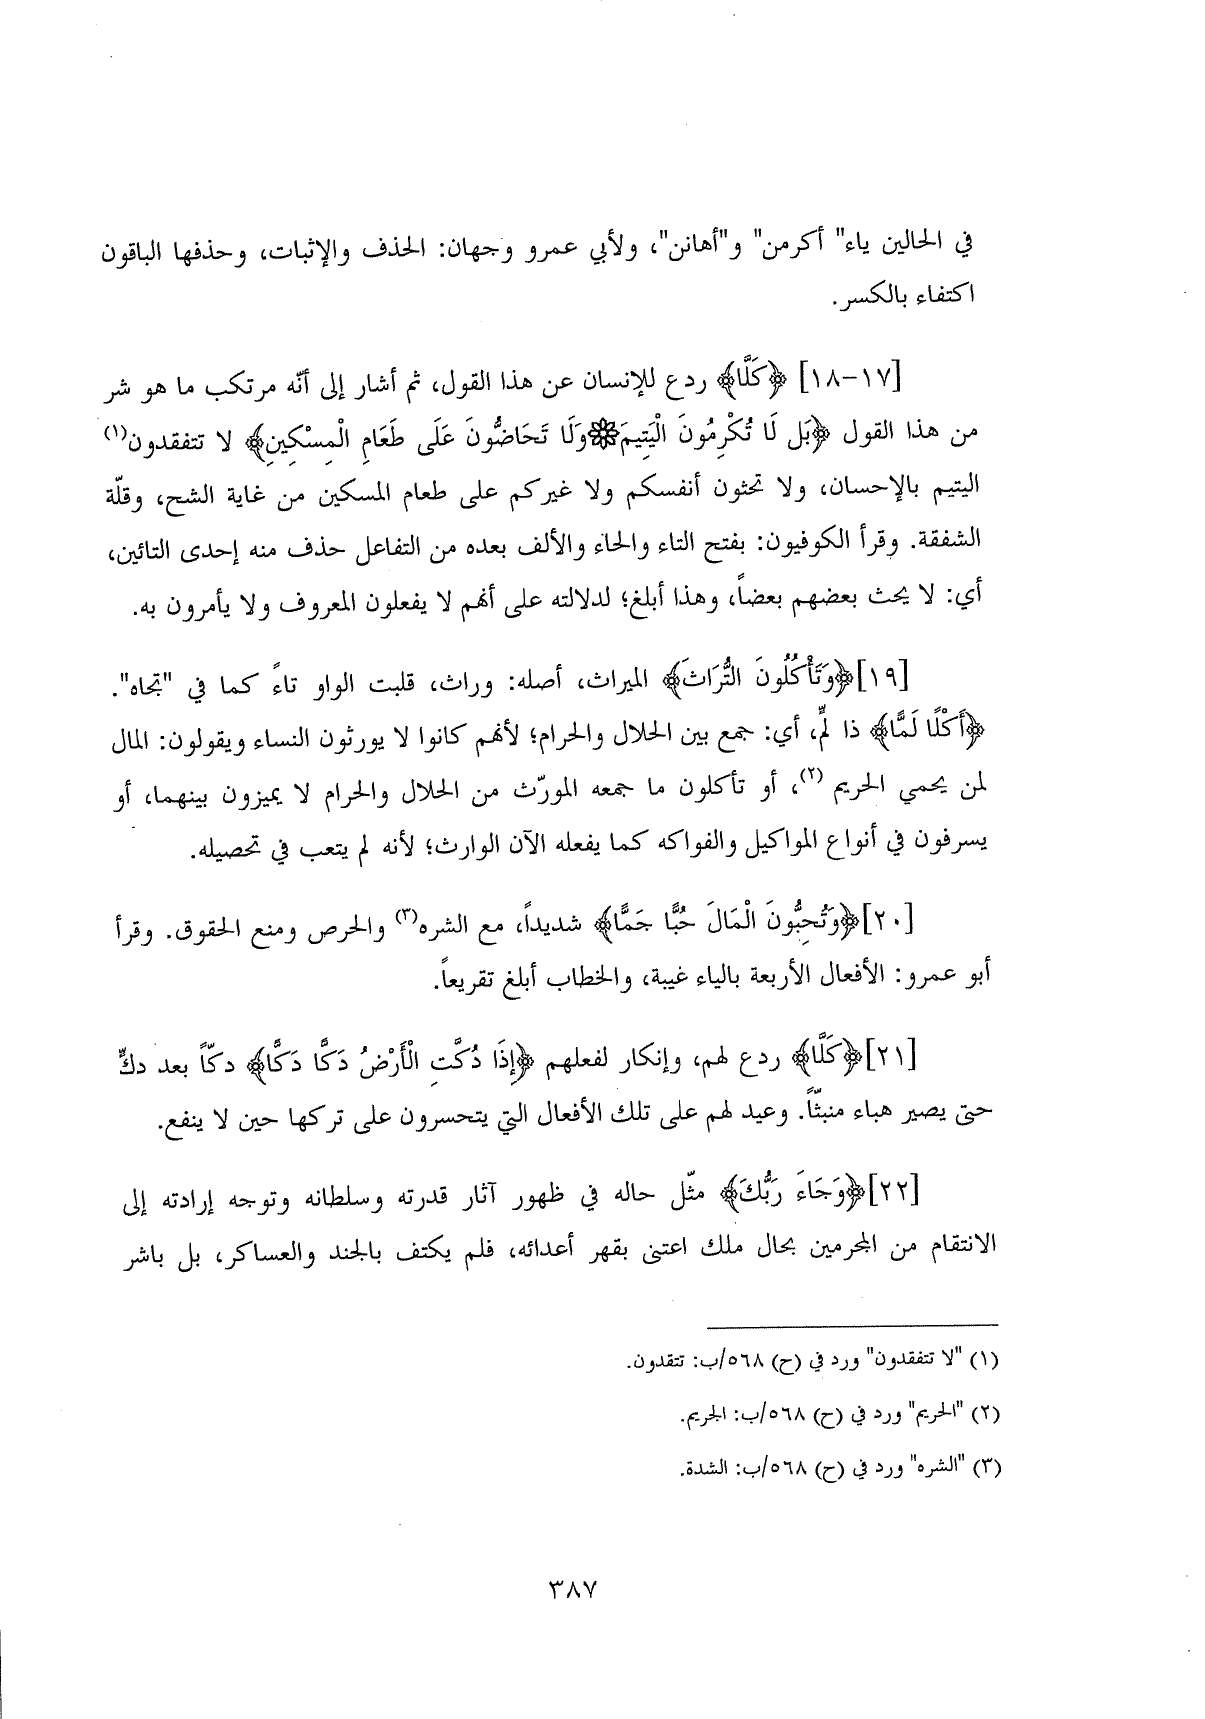 في الحالين ياء" أكرمن" و"أهانن"، ولأبي عمرو وجهان: الحذف والإثبات، وحذفها الباقون
اكتفاء بالكسر.
[١٧-١٨] ﴿كَلَّا﴾ ردع للإنسان عن هذا القول، ثم أشار إلى أنّه مرتكب ما هو شر
من هذا القول ﴿بَل لَا تُكْرِمُونَ الْيَتِيمَ۞وَلَا تَحَاضُّونَ عَلَى طَعَامِ الْمِسْكِينِ﴾ لا تتفقدون(١)
اليتيم بالإحسان، ولا تحثون أنفسكم ولا غيركم على طعام المسكين من غاية الشح، وقلّة
الشفقة. وقرأ الكوفيون: بفتح التاء والحاء والألف بعده من التفاعل حذف منه إحدى التائين،
أي: لا يحث بعضهم بعضاً، وهذا أبلغ؛ لدلالته على أنهم لا يفعلون المعروف ولا يأمرون به.
[١٩]﴿وَتَأْكُلُونَ التُّرَاثَ﴾ الميراث، أصله: وراث، قلبت الواو تاءً كما في "تجاه".
﴿أَكْلًا لَمًّا﴾ ذا لمٍّ، أي: جمع بين الحلال والحرام؛ لأنهم كانوا لا يورثون النساء ويقولون: المال
لمن يحمي الحريم (٢)، أو تأكلون ما جمعه المورّث من الحلال والحرام لا يميزون بينهما، أو
يسرفون في أنواع المواكيل والفواكه كما يفعله الآن الوارث؛ لأنه لم يتعب في تحصيله.
[٢٠]﴿وَتُحِبُّونَ الْمَالَ حُبًّا جَمًّا﴾ شديداً، مع الشره(٣) والحرص ومنع الحقوق. وقرأ
أبو عمرو: الأفعال الأربعة بالياء غيبة، والخطاب أبلغ تقريعاً.
[٢١]﴿كَلَّا﴾ ردع لهم، وإنكار لفعلهم ﴿إِذَا دُكَّتِ الْأَرْضُ دَكًّا دَكًّا﴾ دكّاً بعد دكٍّ
حتى يصير هباء منبثّاً. وعيد لهم على تلك الأفعال التي يتحسرون على تركها حين لا ينفع.
[٢٢]﴿وَجَاءَ رَبُّكَ﴾ مثّل حاله في ظهور آثار قدرته وسلطانه وتوجه إرادته إلى
الانتقام من المجرمين بحال ملك اعتنى بقهر أعدائه، فلم يكتف بالجند والعساكر، بل باشر
(١) "لا تتفقدون" ورد في (ح) ٥٦٨/ب: تتقدون.
(٢) "الحريم" ورد في (ح) ٥٦٨/ب: الجريم.
(٣) "الشره" ورد في (ح) ٥٦٨/ب: الشدة.
٣٨٧